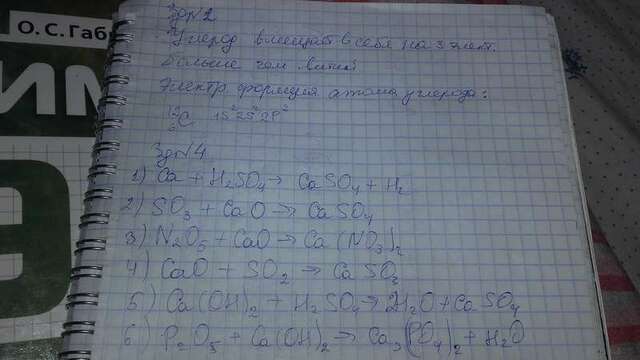 О. С. Габ
ИМ
Зд№2
Углерод вмещает в себя на 3 элект.
больше чем литий
Электр. формула атома углерода:
¹²₆C 1S² 2S² 2P²
Зд№4
1) Ca + H₂SO₄ → CaSO₄ + H₂
2) SO₃ + CaO → CaSO₄
3) N₂O₅ + CaO → Ca(NO₃)₂
4) CaO + SO₂ → CaSO₂
5) Ca(OH)₂ + H₂SO₄ → 2H₂O + CaSO₄
6) P₂O₅ + Ca(OH)₂ → Ca₃(PO₄)₂ + H₂O